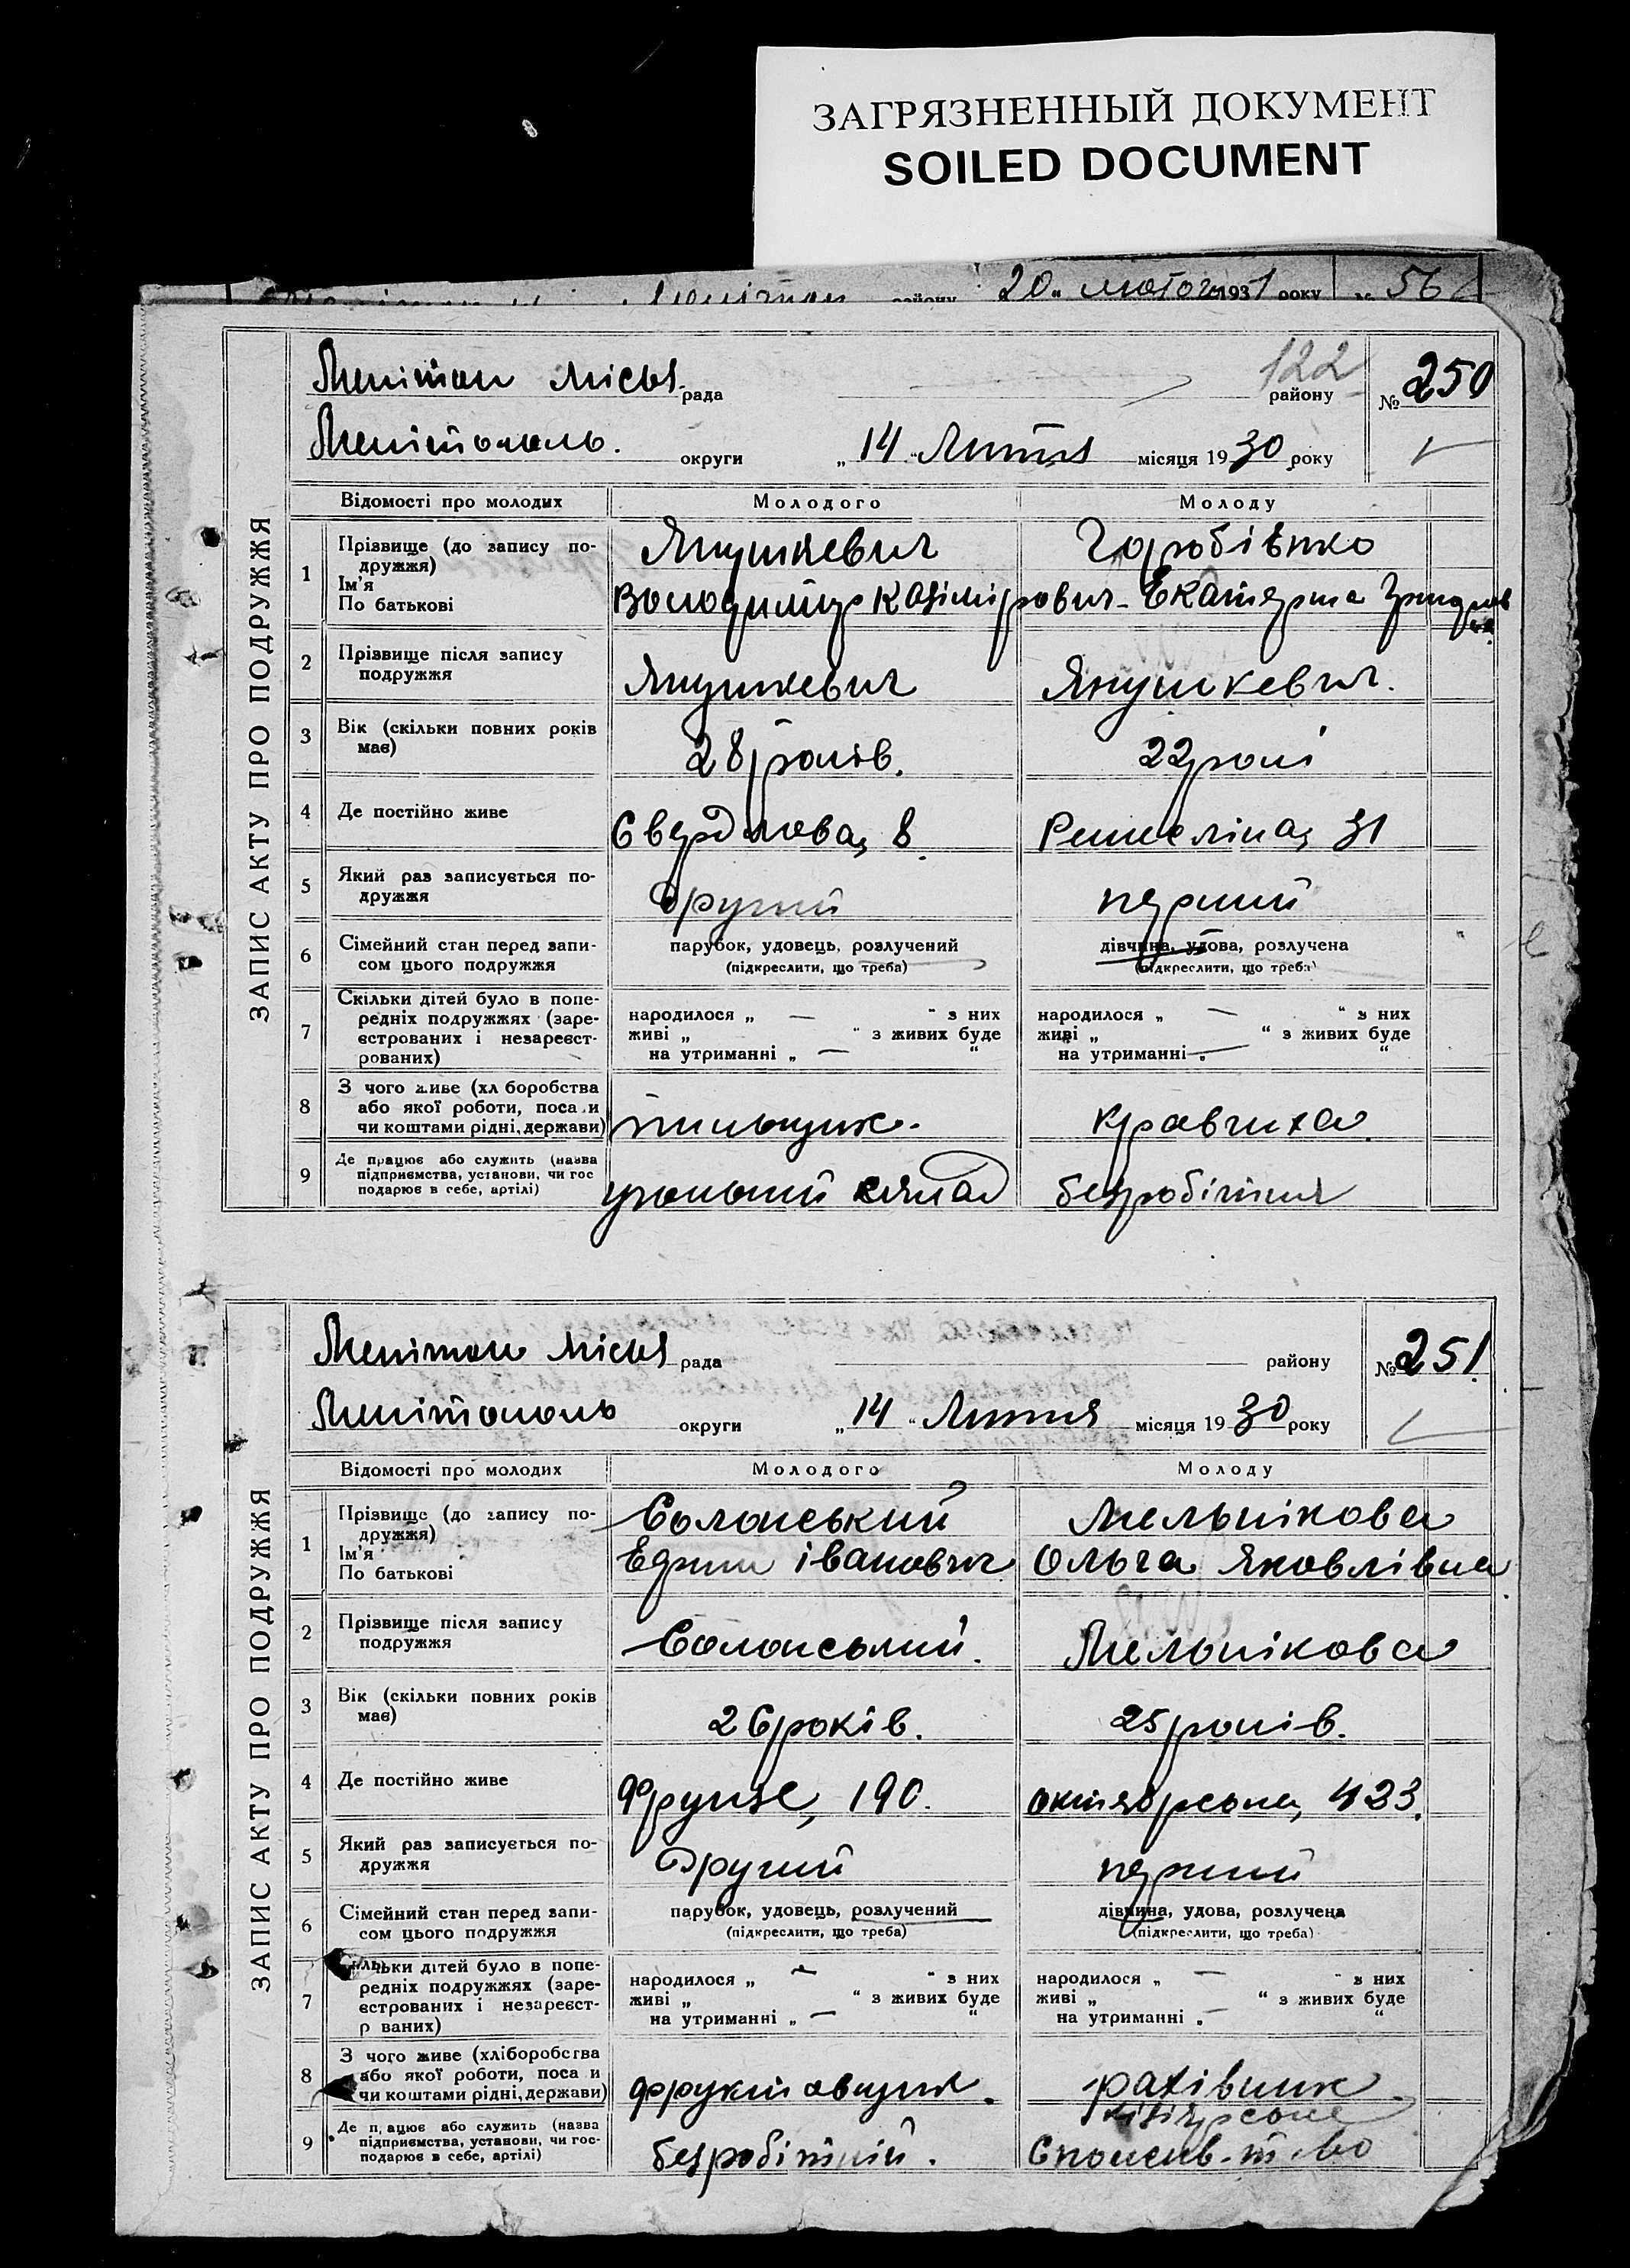 ЗАГРЯЗНЕННЫЙ ДОКУМЕНТ
SOILED DOCUMENT
району 20 „ лютого 1931 року № 56
ЗАПИС АКТУ ПРО ПОДРУЖЖЯ
Мелітоп міськ. рада району 122 № 250
Мелітополь. округи „ 14 “ Лютня місяця 19 30 року
Відомості про молодих Молодого Молоду
1 Прізвище (до запису по- Янушкевич Горобівко
дружжя)
Ім'я Володимир Казімірович- Екатерина
По батькові
2 Прізвище після запису Янушкевич Янушкевич.
подружжя
3 Вік (скільки повних років 28 років. 22 роки
має)
4 Де постійно живе Свердлова, 8. 31
5 Який раз записується по- другий перший
дружжя
6 Сімейний стан перед запи- парубок, удовець, розлучений дівчина, удова, розлучена
сом цього подружжя (підкреслити, що треба) (підкреслити, що треба)
7 Скільки дітей було в попе- народилося „ — “ з них народилося „ — “ з них
редніх подружжях (заре- живі „ “ з живих буде живі „ “ з живих буде
єстрованих і незареєст- на утриманні „ — “ на утриманні „ — “
рованих)
8 З чого живе (хл боробства
або якої роботи, поса и
чи коштами рідні, держави) пильщик. кравчиха
9 Де працює або служить (назва
підприємства, установи, чи гос
подарює в себе, артілі) безробітня
ЗАПИС АКТУ ПРО ПОДРУЖЖЯ
Мелітоп міськ рада району № 251
Мелітополь округи „ 14 “ Лютня місяця 19 30 року
Відомості про молодих Молодого Молоду
1 Прізвище (до запису по- Солонський Мельнікова
дружжя)
Ім'я іванович Ольга Яковлівна
По батькові
2 Прізвище після запису Солонський. Мельнікова
подружжя
3 Вік (скільки повних років 26 років. 25 років.
має)
4 Де постійно живе Фрунзе, 190. октябрська, 423.
5 Який раз записується по- Другий перший
дружжя
6 Сімейний стан перед запи- парубок, удовець, розлучений дівчина, удова, розлучена
сом цього подружжя (підкреслити, що треба) (підкреслити, що треба)
7 льки дітей було в попе- народилося „ — “ з них народилося „ — “ з них
редніх подружжях (заре- живі „ “ з живих буде живі „ “ з живих буде
єстрованих і незареєст- на утриманні „ — “ на утриманні „ — “
р ваних)
8 З чого живе (хліборобства
або якої роботи, поса и
чи коштами рідні, держави) фруктовщик. рахівник
9 Де п, ацює або служить (назва
підприємства, установи, чи гос-
подарює в себе, артілі) безробітній. Спожив. т-во